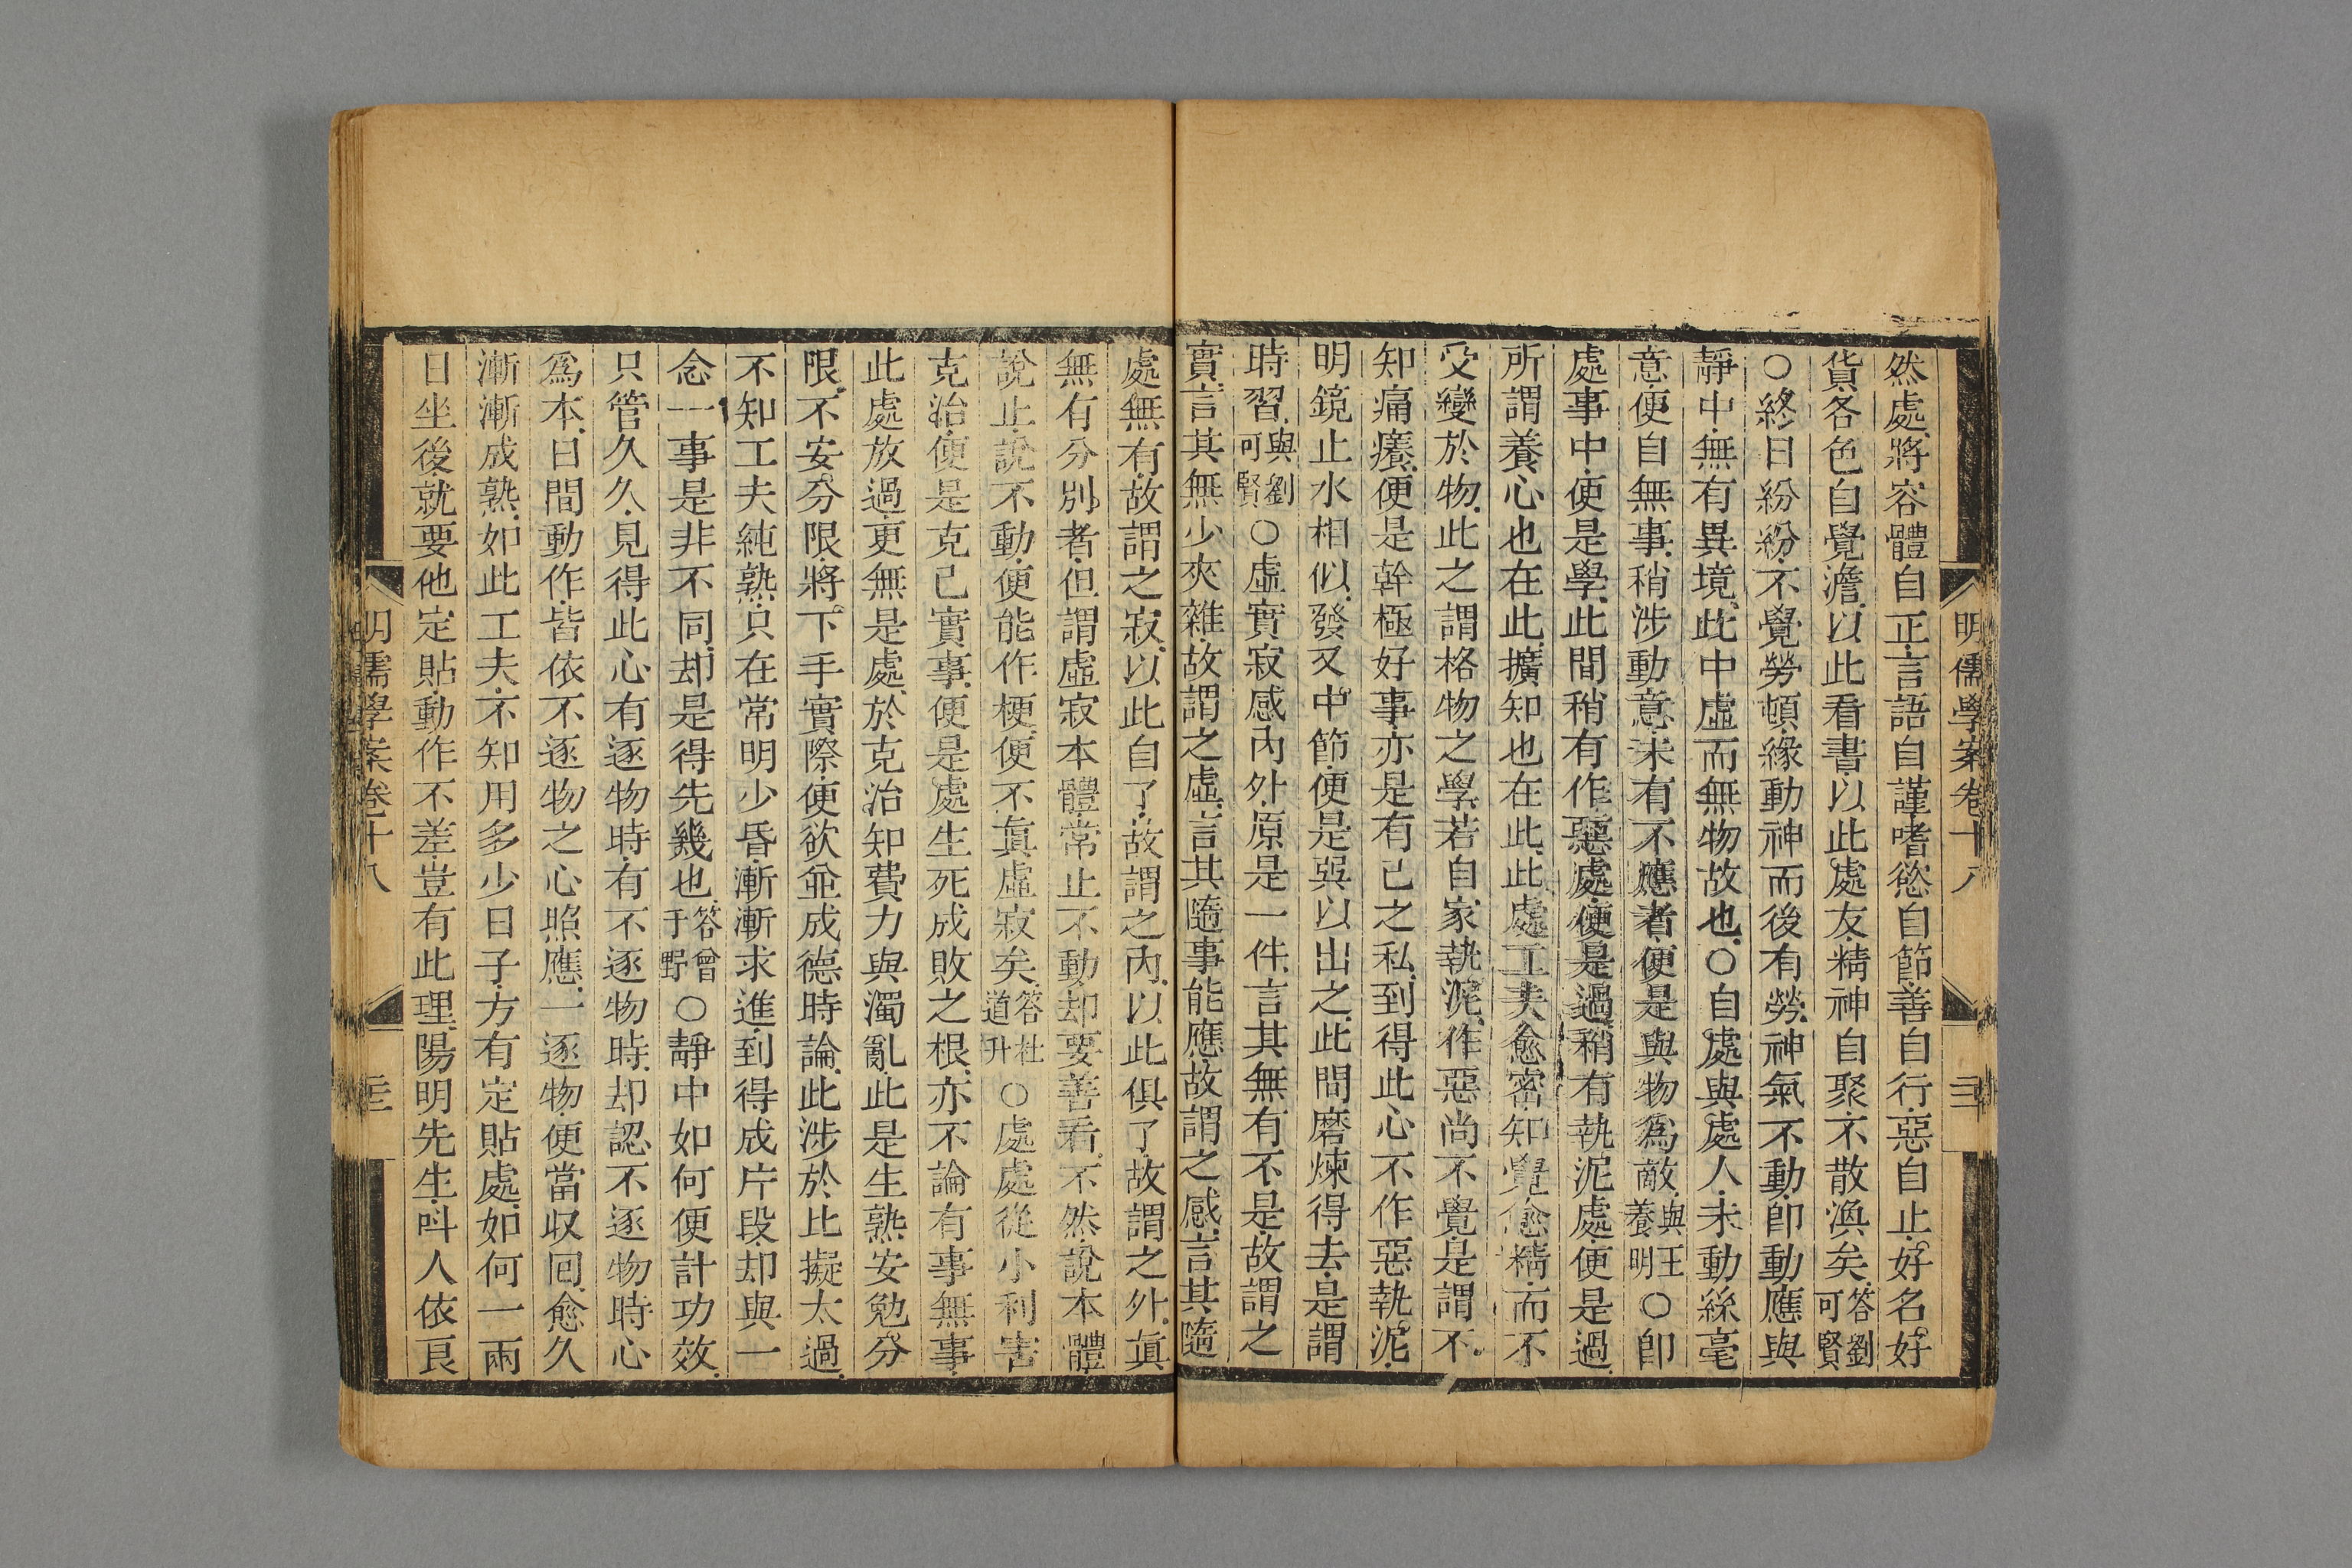 明儒學案卷十八
三十
然處將容體自正言語自謹嗜慾自節善自行惡自止好名好
貨各色自覺澹以此看書以此處友精神自聚不散渙矣答劉可賢
○終日紛紛不覺勞頓緣動神而後有勞神氣不動卽動應與
靜中無有異境此中虛而無物故也○自處與處人未動絲毫
意便自無事稍涉動意未有不應者便是與物爲敵與王養明○卽
處事中便是學此間稍有作惡處便是過稍有執泥處便是過
所謂養心也在此擴知也在此此處工夫愈密知覺愈精而不
受變於物此之謂格物之學若自家執泥作惡尚不覺是謂不
知痛癢便是幹極好事亦是有己之私到得此心不作惡執泥
明鏡止水相似發又中節便是巽以出之此間磨煉得去是謂
時習與劉可賢○虛實寂感內外原是一件言其無有不是故謂之
實言其無少夾雜故謂之虛言其隨事能應故謂之感言其隨
處無有故謂之寂以此自了故謂之內以此俱了故謂之外眞
無有分別者但謂虛寂本體常止不動却要善看不然說本體
說止說不動便能作梗便不眞虛寂矣答杜道升○處處從小利害
克治便是克己實事便是處生死成敗之根亦不論有事無事
此處放過更無是處於克治知費力與濁亂此是生熟安勉分
限不安分限將下手實際便欲並成德時論此涉於比擬太過
不知工夫純熟只在常明少昏漸漸求進到得成片段却與一
念一事是非不同却是得先幾也答曾于野○靜中如何便計功效
只管久久見得此心有逐物時有不逐物時却認不逐物時心
爲本日間動作皆依不逐物之心照應一逐物便當収囘愈久
漸漸成熟如此工夫不知用多少日子方有定貼處如何一兩
日坐後就要他定貼動作不差豈有此理陽明先生呌人依良
明儒學案卷十八